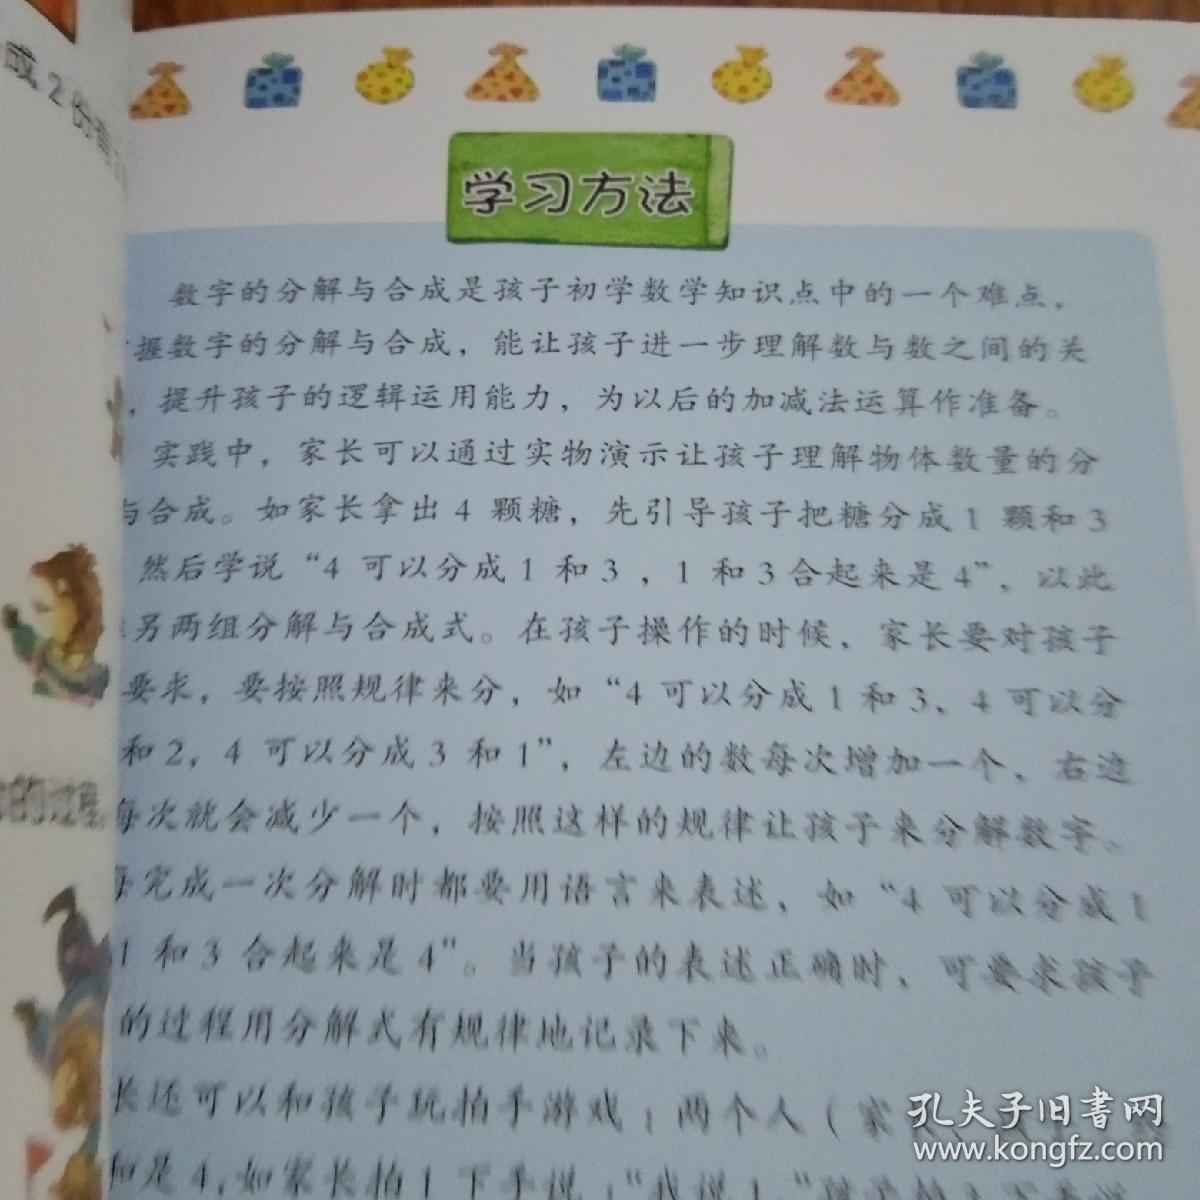 成2份有
学习方法
数字的分解与合成是孩子初学数学知识点中的一个难点，
握数字的分解与合成，能让孩子进一步理解数与数之间的关
，提升孩子的逻辑运用能力，为以后的加减法运算作准备。
实践中，家长可以通过实物演示让孩子理解物体数量的分
与合成。如家长拿出4 颗糖，先引导孩子把糖分成1 颗和3
然后学说“4 可以分成1 和3，1 和3合起来是4”，以此
另两组分解与合成式。在孩子操作的时候，家长要对孩子
要求，要按照规律来分，如“4 可以分成1 和3，4 可以分
和2，4 可以分成3 和1”，左边的数每次增加一个，右边
的过程。
每次就会减少一个，按照这样的规律让孩子来分解数字。
每完成一次分解时都要用语言来表述，如“4 可以分成1
1 和3 合起来是4”。当孩子的表述正确时，可要求孩子
的过程用分解式有规律地记录下来。
长还可以和孩子玩拍手游戏：两个人（家
和是4，如家长拍1下手说：“我说1，”孩子拍
孔夫子旧书网
www.kongfz.com